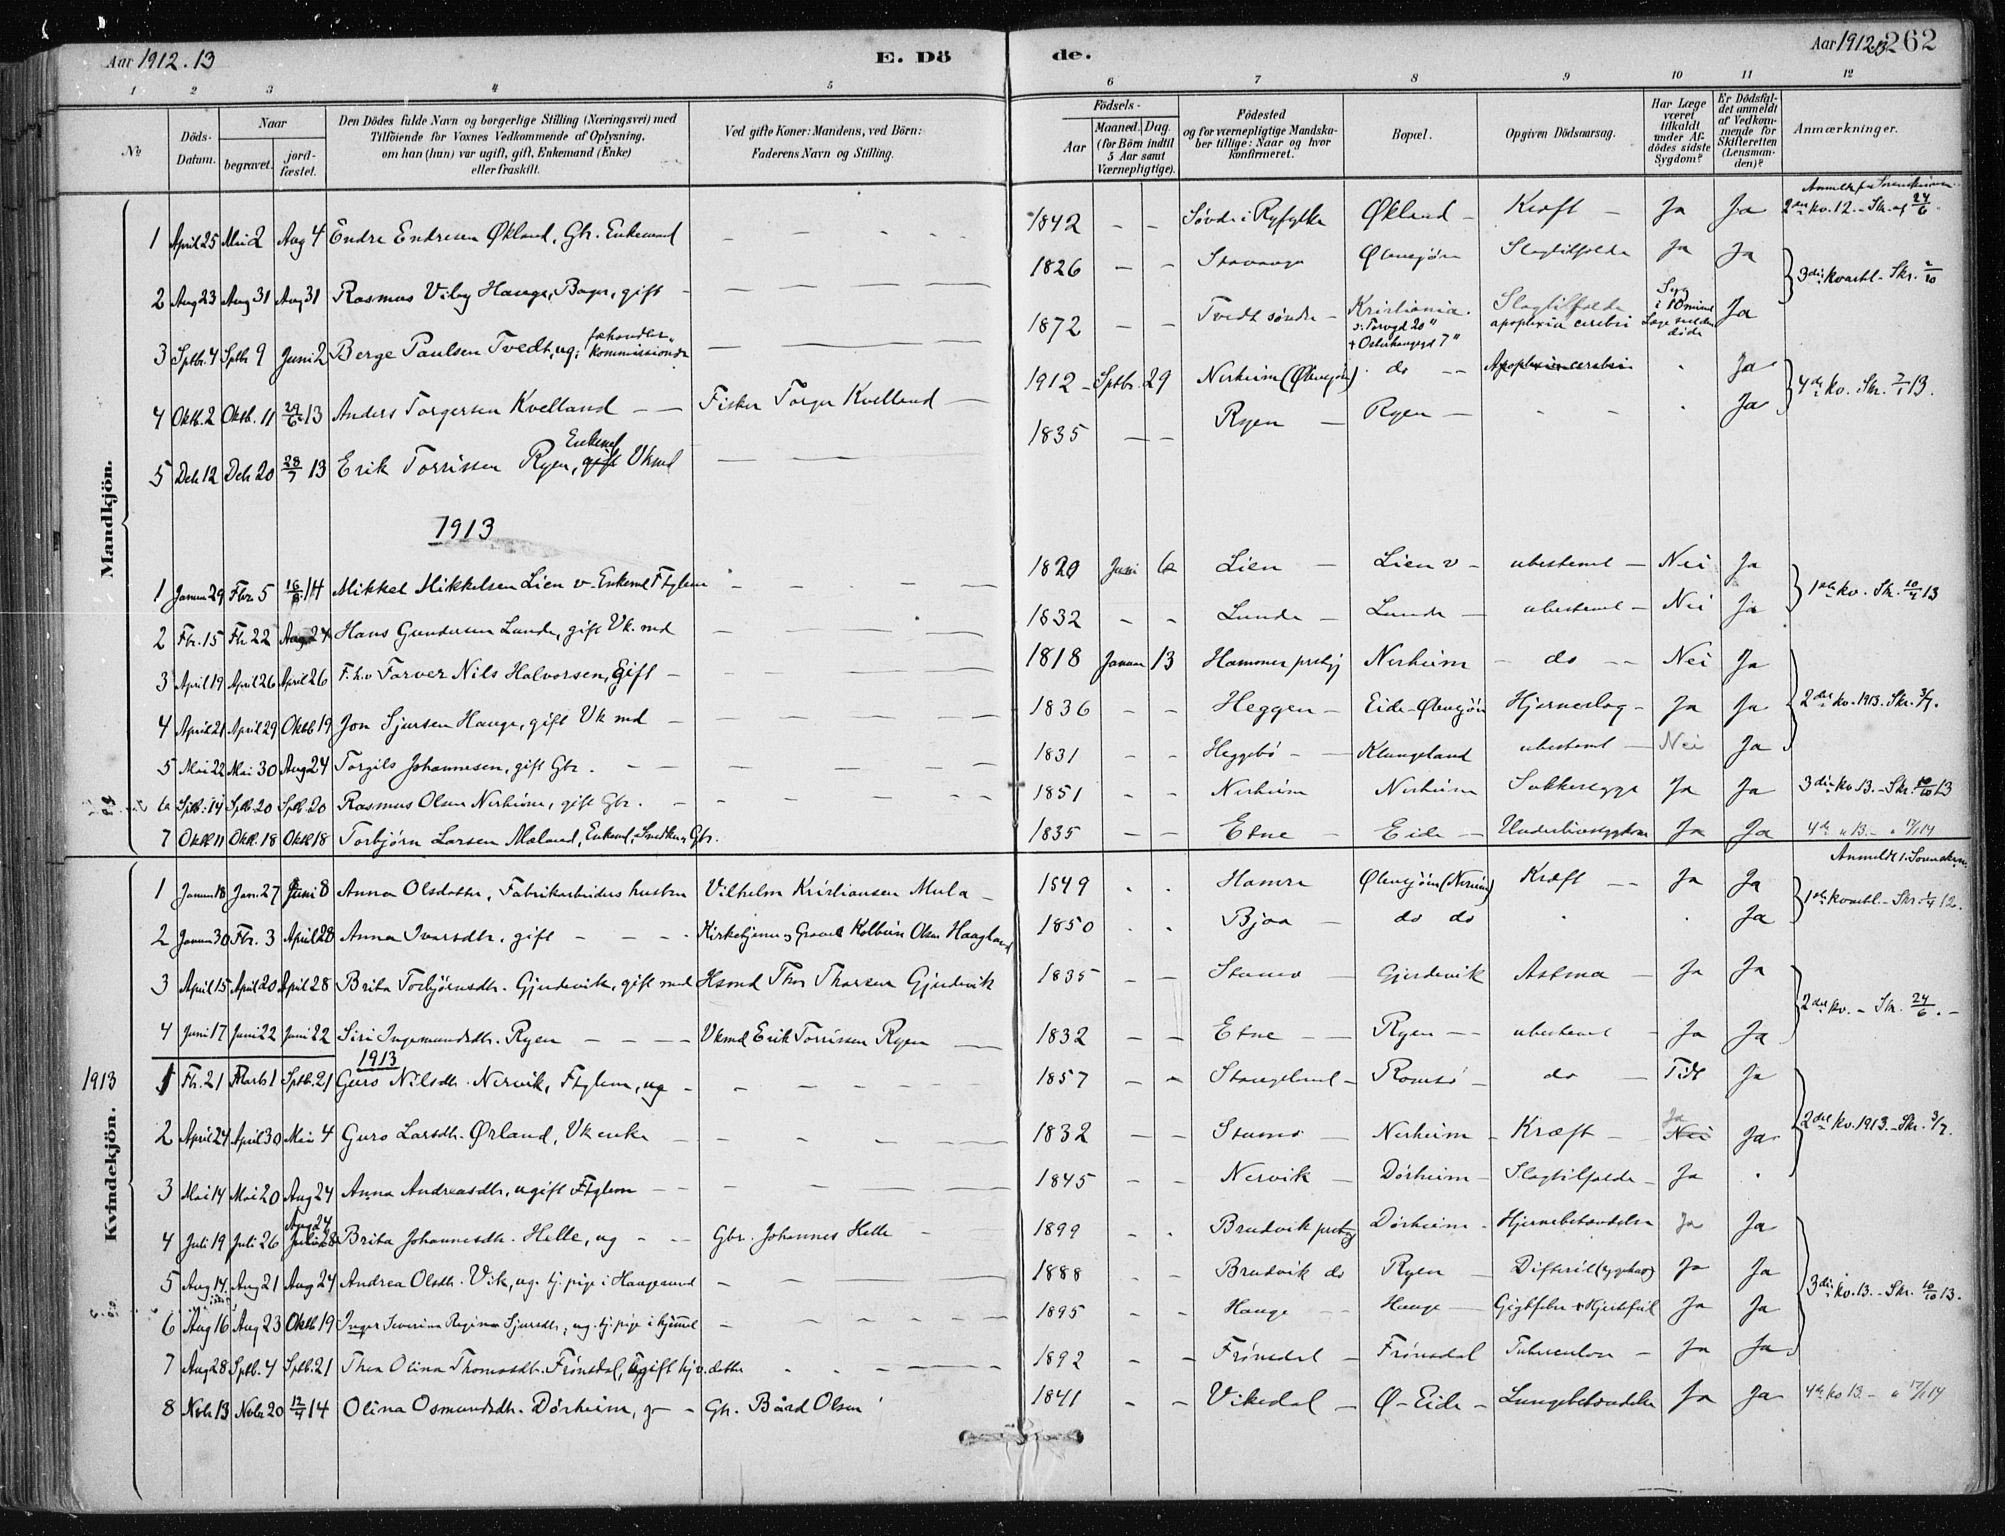 Aar 1912.13 E. Dö de. Aar 1912.13 262
1 2 3 4 5 6 7 8 9 10 11 12
No Döds-Datum. Naar begravet. jordfæstet. Den Dödes fulde Navn og borgerlige Stilling (Næringsvei) med Tilföiende for Voxnes Vedkommende af Oplysning, om han (hun) var ugift, gift, Enkemand (Enke) eller fraskilt. Ved gifte Koner: Mandens, ved Börn: Faderens Navn og Stilling. Födsels- Aar Maaned. Dag. (for Börn indtil 5 Aar samt Værnepligtige). Födested og for værnepligtige Mandskaber tillige: Naar og hvor konfirmeret. Bopæl. Opgiven Dödsaarsag. Har Læge været tilkaldt under Afdödes sidste Sygdom? Er Dödsfaldet anmeldt af Vedkommende for Skifteretten (Lensmanden)? Anmærkninger.
Mandkjön.
1 April 25 Mai 2 Aug 4 Endre Endresen Økland, Gbr. Enkemand 1842 Søvde i Ryfylke Økland Kræft Ja Ja 2det kv. 12. - Skr. af 24/6.
2 Aug 23 Aug 31 Aug 31 Rasmus Vibg Hauge, Bager, gift 1826 Stavanger Ølensjøen Slagtilfælde Ja Ja 3die kvartal - Skr. 2/10
3 Sptb. 4 Sptb 9 Juni 2 Berge Paulsen Tvedt, ug. fæhandler, kommissionær 1872 Tvedt søndre Kristiania. Slagtilfælde apoplexia cerebri Ja
4 Oktb. 2 Oktb. 11 29/6 13 Anders Torgersen Kvelland Fisker Torger Kvelland 1912 Sptbr. 29 Nerheim (Ølensjøen) do Apoplexia cerebri Ja 4de kv. Skr. 7/1 13.
5 Deb 12 Deb 20 28/7 13 Erik Torrissen Ryen, gift Enkemd Vkmd 1835 Ryen Ryen Ja
1913
1 Januar 29 Fbr. 5 16/8 14 Mikkel Mikkelsen Lien v. Enkemd Ftglem 1820 Juni 6 Lien Lien v ubestemt Nei Ja 1ste kv. Skr. 10/4 13
2 Fbr. 15 Fbr. 22 Aug 24 Hans Gundersen Lunde, gift Vk. md 1832 Lunde Lunde ubestemt Nei Ja
3 April 19 April 26 April 26 F.h.v Farver Nils Halvorsen, Gift 1818 Januar 13 Hammer prstgj Nerheim do Nei Ja
4 April 21 April 29 Oktb 19 Jon Sjursen Hauge, gift Vk md 1836 Heggen Eide-Ølensjøen Hjerneslag Ja Ja 2det kv. 1913. Skr. 3/7.
5 Mai 22 Mai 30 Aug 24 Torgils Johannesen, gift Gbr. 1831 Heggebø Klungeland ubestemt Nei Ja
6 Sptb. 14 Sptb 20 Sptb. 20 Rasmus Olsen Nerheim, gift Gbr. 1851 Nerheim Nerheim Sukkersyge Ja Ja 3die kv 13. - Skr. 10/10 13
7 Oktb 11 Oktb. 18 Oktb 18 Torbjørn Larsen Mæland, Enkemd, Smed og Gbr. 1835 Etne Eide Underlivssygdom Ja Ja 4de " 13. - " 17/1 14
Kvindekjön.
1 Januar 18 Jan. 27 Juni 8 Anna Olsdatter, Fabrikarbeiders hustru Vilhelm Kristiansen Mula 1849 Hamre Ølensjøen (Nerheim) Kræft Ja Ja 1ste kvartal - Skr. 1/4 12.
2 Januar 30 Fbr. 3 April 28 Anna Ivarsdtr. gift Kirketjener og Graver Kolbein Olsen Haagland 1850 Bjoa do do Ja
3 April 15 April 20 April 28 Brita Torbjørnsdtr. Gjerdevik, gift med Hsmd Thor Thorsen Gjerdevik 1835 Stumo Gjerdevik Astma Ja Ja
4 Juni 17 Juni 22 Juni 22 Siri Ingemundsdtr. Ryen Vkmd Erik Torrissen Ryen 1832 Etne Ryen ubestemt Ja Ja 2det kv. - Skr. 24/6. -
1913
1913 1 Fbr. 21 Marts 1 Sptb. 21 Guro Nilsdtr. Nervik, Ftglem, ug 1857 Stangeland Romsø do Tidl Ja
2 April 24 April 30 Mai 4 Guro Larsdtr. Ørland, Vk enke 1832 Stumo Nerheim Kræft Ja Nei Ja 2det kv. 1913. - Skr. 3/7.
3 Mai 14 Mai 20 Aug 24 Anna Andreasdtr, ugift Ftglem 1845 Nervik Dørheim Slagtilfælde Ja
4 Juli 19 Juli 26 Aug 24 Juli 28 Brita Johannesdtr. Helle, ug Gbr. Johannes Helle 1899 Bruvik prstgj Dørheim Hjernebetændelse Ja Ja
5 Aug 14. Aug 21 Aug 24 Andrea Olsdtr. Vik, ug. tj. pige i Haugesund 1888 Bruvik do Ryen Difterit (sygehus) Ja Ja 3die kv. 13. - Skr. 10/10 13.
6 Aug 16 Aug 23 Oktb 19 Inger Severine Regine Sjursdtr., ug. tj. pige i hjemmet 1895 Hauge Hauge Gigtfeber & Hjertefeil Ja Ja
7 Aug 28 Sptb. 4 Sptb. 21 Thea Olina Thomasdtr. Frønsdal, ugift hjv. datter 1892 Frønsdal Frønsdal Tuberculose Ja Ja
8 Novb 13 Novb 20 12/9 14 Olina Osmundsdtr. Dørheim, g Gbr. Bård Olsen 1841 Vikedal Ø-Eide Lungebetændelse Ja Ja 4de kv 13. - " 17/1 14